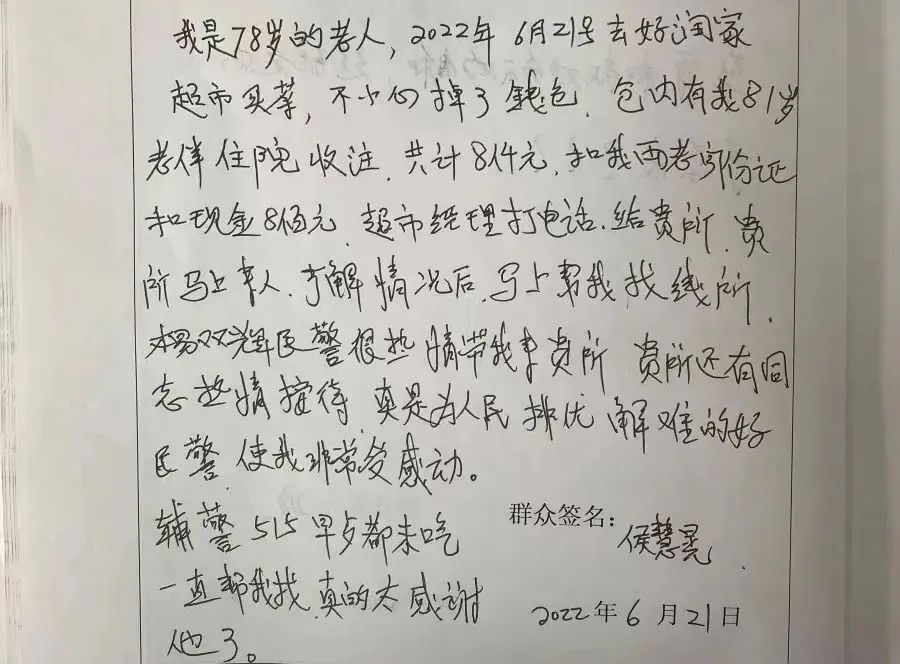 我是78岁的老人,2022年6月21号去好润家
超市买菜,不小心掉了钱包.包内有我81岁
老伴住院收注.共计8仟元.和我两老身份证
和现金8佰元.超市经理打电话.给费所.费
所马上来人.了解情况后.马上帮我找线所.
杨双辉民警很热情带我来费所 费所还有同
志热情接待.真是为人民排忧解难的好
民警.使我非常受感动。
辅警515早点都未吃
一直帮我找.真的太感谢
他了。
群众签名:
侯慧
2022年6月21日